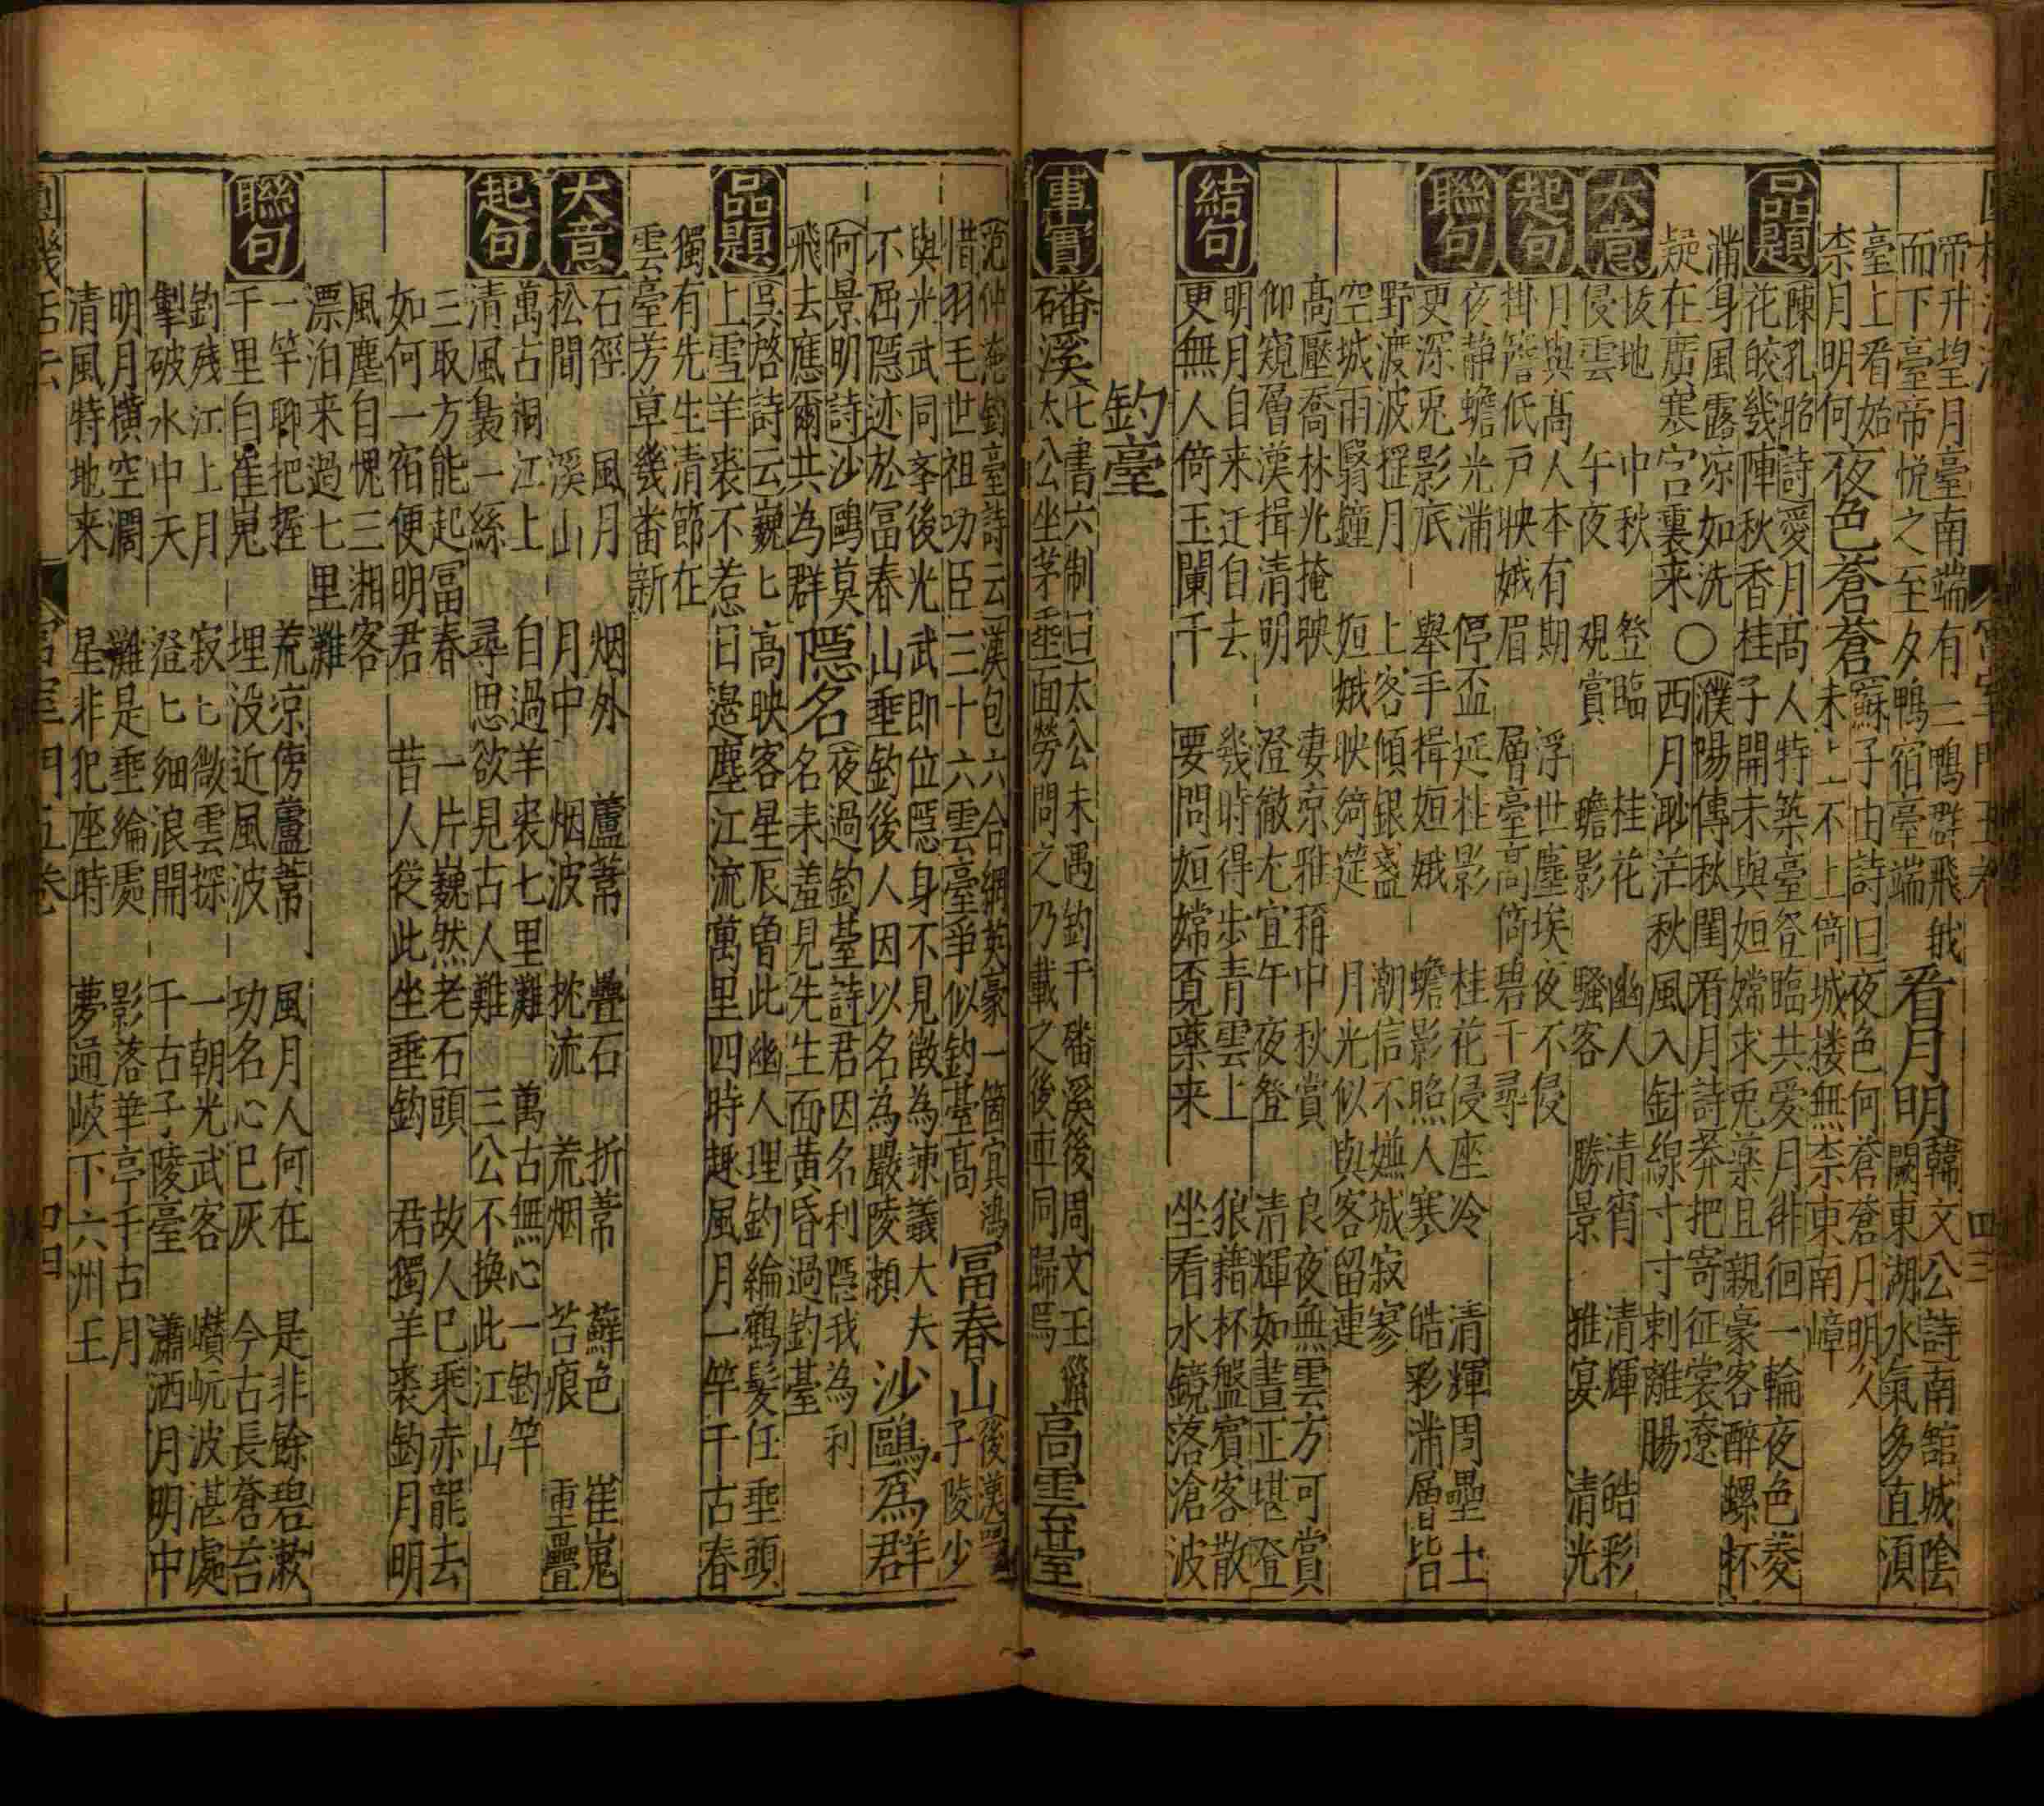 帝升望月臺南端有二鴨群飛我
而下臺帝悅之至夕鴨宿臺端
看月明
韓文公詩南館城陰
闕東湖水氣多直須
臺上看始
柰月明何
夜色蒼蒼
蘇子由詩曰夜色何蒼蒼月明人
未上上不上倚城楼無柰東南嶂
品題
陳孔昭詩愛月高人特築臺登臨共愛月徘徊一輪夜色菱
花皎幾陣秋香桂子開未與姮嫦求兎藥且親豪客醉螺杯
滿身風露凉如洗〇濮陽傳秋閨看月詩莽把寄征裳遼
疑在廣寒宮裏来 西月渺茫秋風入針線寸寸刺離腸
大意
拔地 中秋 登臨 桂花 幽人 清宵 清輝 皓彩
侵雲 午夜 覌賞 蟾影 騷客 勝景 雅宴 清光
起句
月與高人本有期 浮世塵埃夜不侵
掛簷低戶映娥眉 層臺高倚碧千尋
聯句
夜静蟾光滿 停盃延桂影 桂花侵座冷 清輝周壘土
更深兎影底 舉手揖姮娥 蟾影照人寒 皓彩滿層皆
野渡波揺月 上客傾銀盞 潮信不嫌城寂寥
空城雨翳鐘 姮娥映綺筵 月光似與客留連
高壓喬林光掩映 凄凉雅稱中秋賞 良夜無雲方可賞
仰窺層漢揖清明 澄徹尤宜午夜登 清輝如晝正堪登
結句
明月自来还自去 幾時得步青雲上 狼藉杯盤賓客散
更無人倚玉闌干 要問姮嫦覓藥来 坐看水鏡落滄波
釣臺
事實
磻溪
七書六制曰太公未遇釣于磻溪後周文王
太公坐茅垂面勞問之乃載之後車同歸焉
高雲臺
范仲淹釣臺詩云漢包六合網英豪一箇冥鴻
惜羽毛世祖功臣三十六雲臺爭似釣臺高
冨春山
後漢
子陵少
與光武同斈後光武即位隱身不見徴為諌議大夫
不屈隱迹於冨春山垂釣後人因以名為嚴陵瀬
沙鷗爲群
何景明詩沙鷗莫
飛去應爾共為群
隱名
夜過釣臺詩君因名利隱我為利
名耒羞見先生面黃昏過釣臺
品題
吳啓詩云巍匕高映客星辰曾此幽人理釣綸鶴髮任垂頭
上雪羊裘不惹日邉塵江流萬里四時趣風月一竿千古春
獨有先生清節在
雲臺芳草幾畨新
大意
石徑 風月 烟外 蘆葦 疊石 折葦 蘚色 崔嵬
松間 溪山 月中 烟波 枕流 荒烟 苔痕 重疊
起句
萬古桐江上 自過羊裘七里灘 萬古無心一釣竿
清風裊一絲 尋思欲見古人難 三公不換此江山
三取方能起冨春 一片巍然老石頭 故人已乘赤龍去
如何一宿便明君 昔人從此坐垂釣 君獨羊裘釣月明
風塵自愧三湘客
漂泊来過七里灘
聯句
一竿聊把握 荒凉傍蘆葦 風月人何在 是非餘碧漱
千里自崔嵬 埋没近風波 功名心已灰 今古長蒼苔
釣殘江上月 寂匕微雲探 一朝光武客 巑岏波湛處
掣破水中天 澄匕細浪開 千古子陵臺 瀟洒月明中
明月橫空濶 灘是垂綸處 影落華亭千古月
清風特地来 星非犯座時 夢通岐下六州王